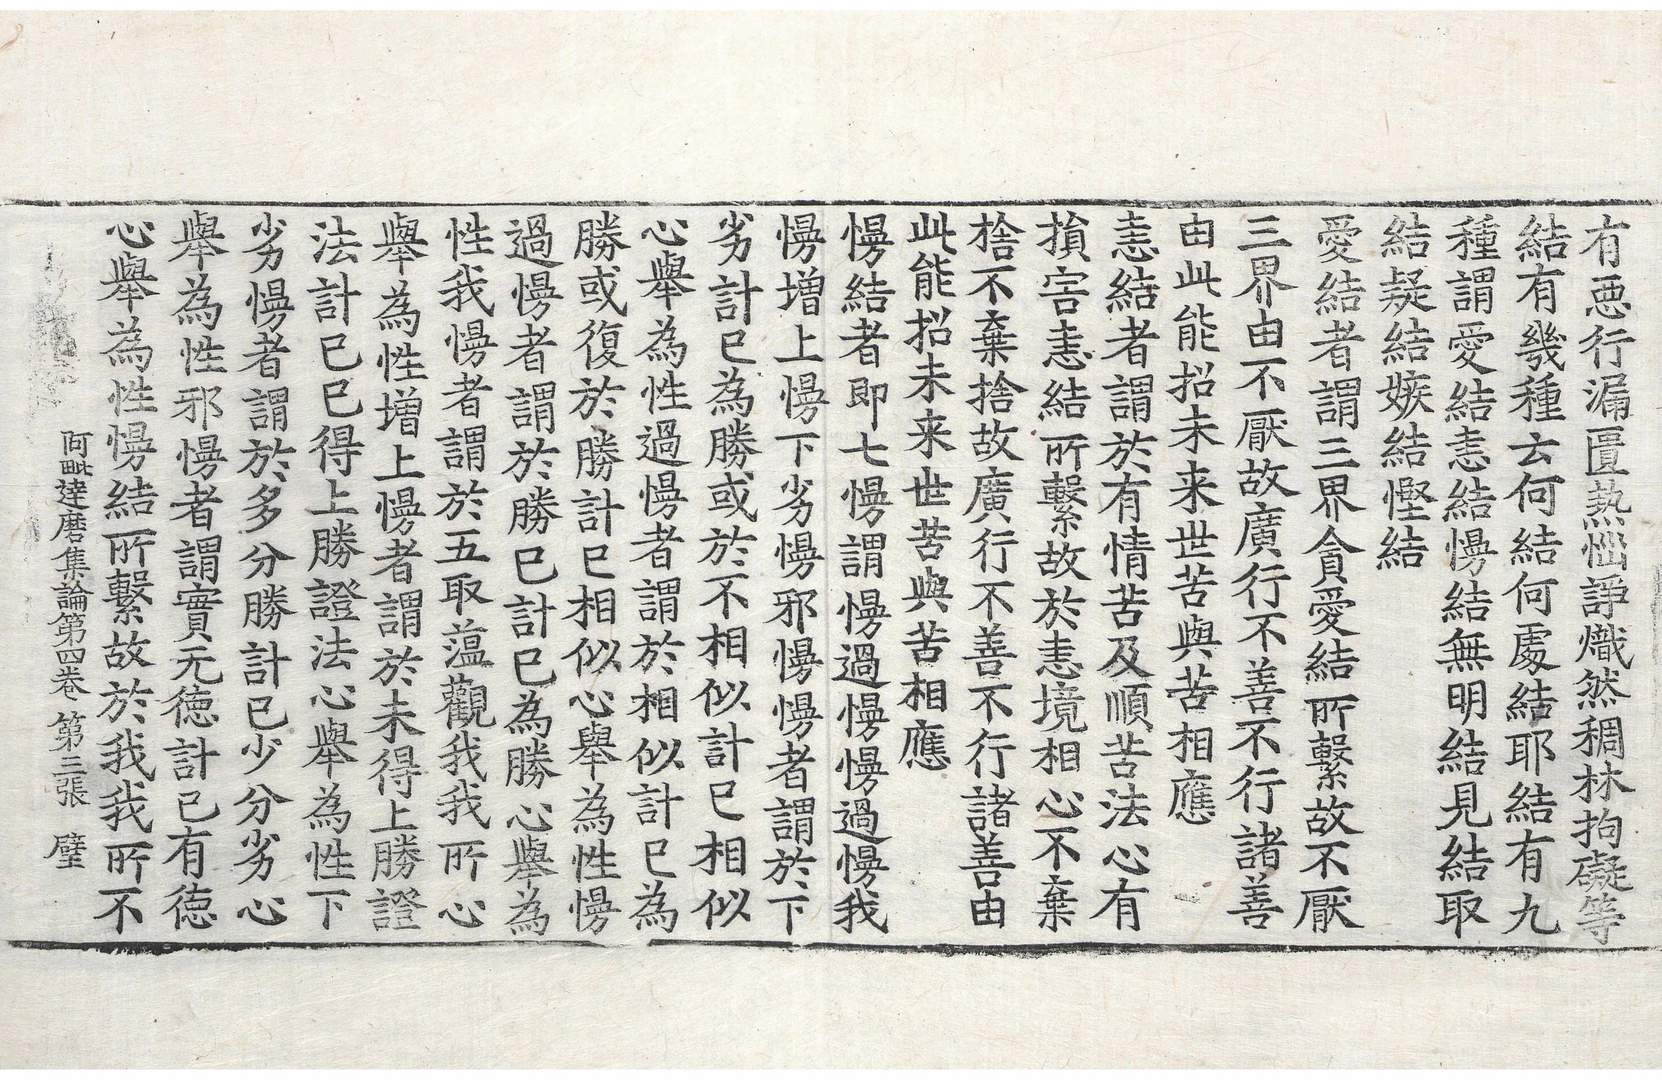 有惡行漏匱熱惱諍熾然稠林拘礙等
結有幾種云何結何處結耶結有九
種謂愛結恚結慢結無明結見結取
結疑結嫉結慳結
愛結者謂三界貪愛結所繫故不厭
三界由不厭故廣行不善不行諸善
由此能招未来世苦與苦相應
恚結者謂於有情苦及順苦法心有
損害恚結所繫故於恚境相心不棄
捨不棄捨故廣行不善不行諸善由
此能招未来世苦與苦相應
慢結者即七慢謂慢過慢慢過慢我
慢增上慢下劣慢邪慢慢者謂於下
劣計己為勝或於不相似計己相似
心舉為性過慢者謂於相似計己為
勝或復於勝計己相似心舉為性慢
過慢者謂於勝己計己為勝心舉為
性我慢者謂於五取蕰觀我我所心
舉為性增上慢者謂於未得上勝證
法計己已得上勝證法心舉為性下
劣慢者謂於多分勝計己少分劣心
舉為性邪慢者謂實无德計己有德
心舉為性慢結所繫故於我我所不
阿毗達磨集論第四卷 第三張 璧